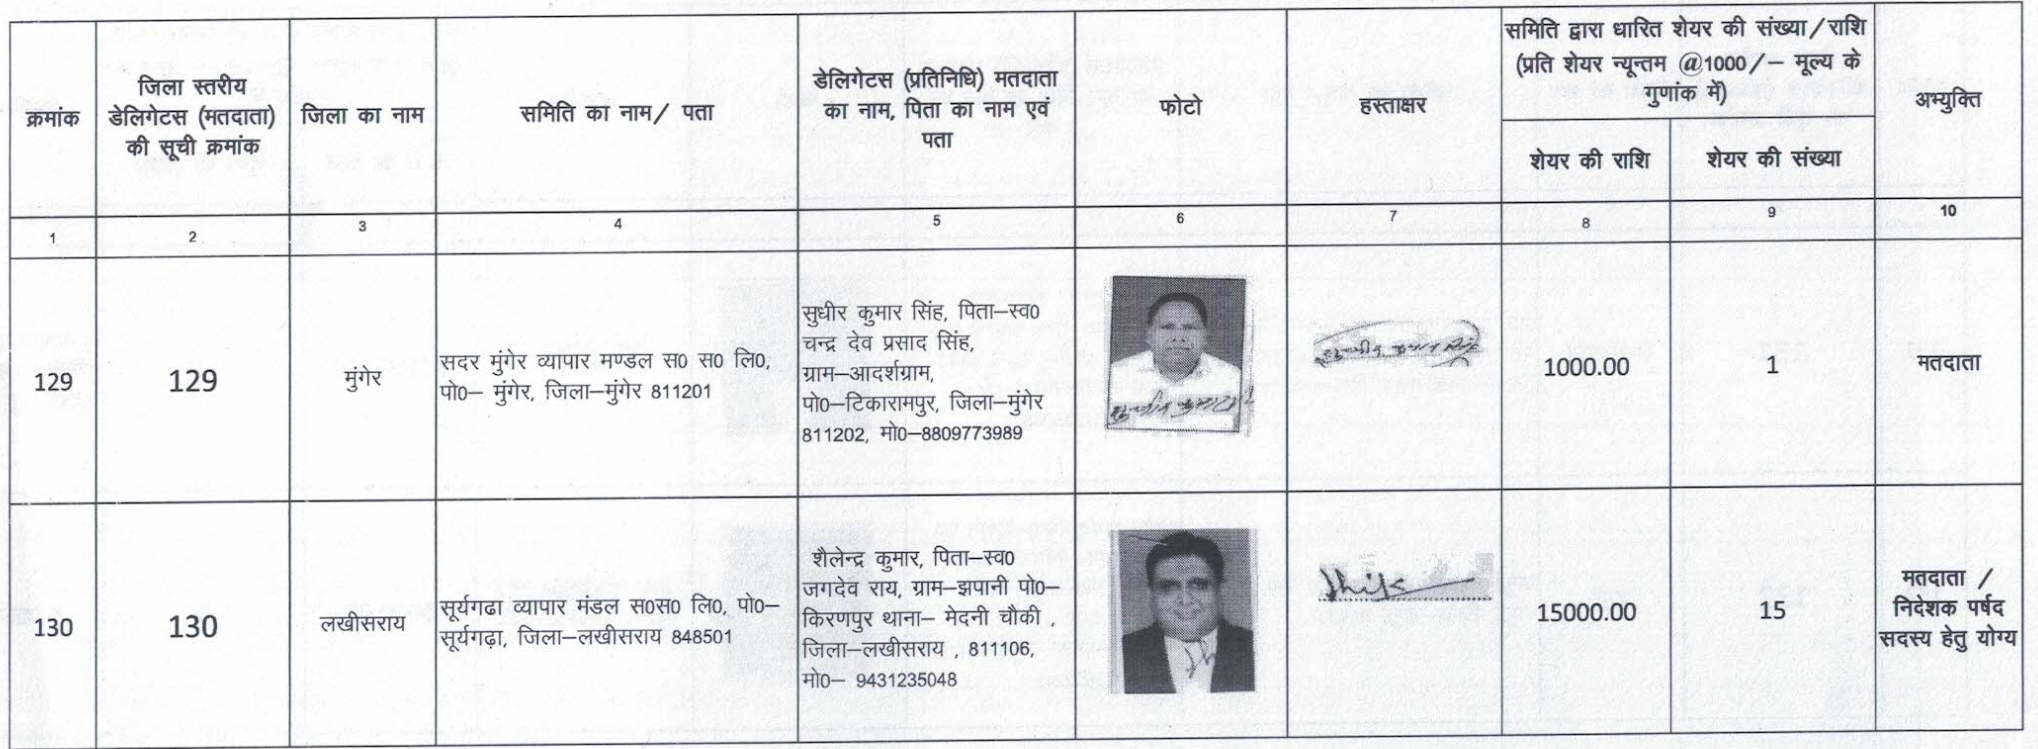 क्रमांक
जिला स्तरीय
डेलिगेटस (मतदाता)
की सूची क्रमांक
जिला का नाम
समिति का नाम/ पता
डेलिगेटस (प्रतिनिधि) मतदाता
का नाम, पिता का नाम एवं
पता
फोटो
हस्ताक्षर
समिति द्वारा धारित शेयर की संख्या/राशि
(प्रति शेयर न्यून्तम @1000/– मूल्य के
गुणांक में)
शेयर की राशि
शेयर की संख्या
अभ्युक्ति
1
2
3
4
5
6
7
8
9
10
129
129
मुंगेर
सदर मुंगेर व्यापार मण्डल स0 स0 लि0,
पो0– मुंगेर, जिला–मुंगेर 811201
सुधीर कुमार सिंह, पिता–स्व0
चन्द्र देव प्रसाद सिंह,
ग्राम–आदर्शग्राम,
पो0–टिकारामपुर, जिला–मुंगेर
811202, मो0–8809773989
1000.00
1
मतदाता
130
130
लखीसराय
सूर्यगढा व्यापार मंडल स0स0 लि0, पो0–
सूर्यगढ़ा, जिला–लखीसराय 848501
शैलेन्द्र कुमार, पिता–स्व0
जगदेव राय, ग्राम–झपानी पो0–
किरणपुर थाना– मेदनी चौकी ,
जिला–लखीसराय , 811106,
मो0– 9431235048
15000.00
15
मतदाता /
निदेशक पर्षद
सदस्य हेतु योग्य